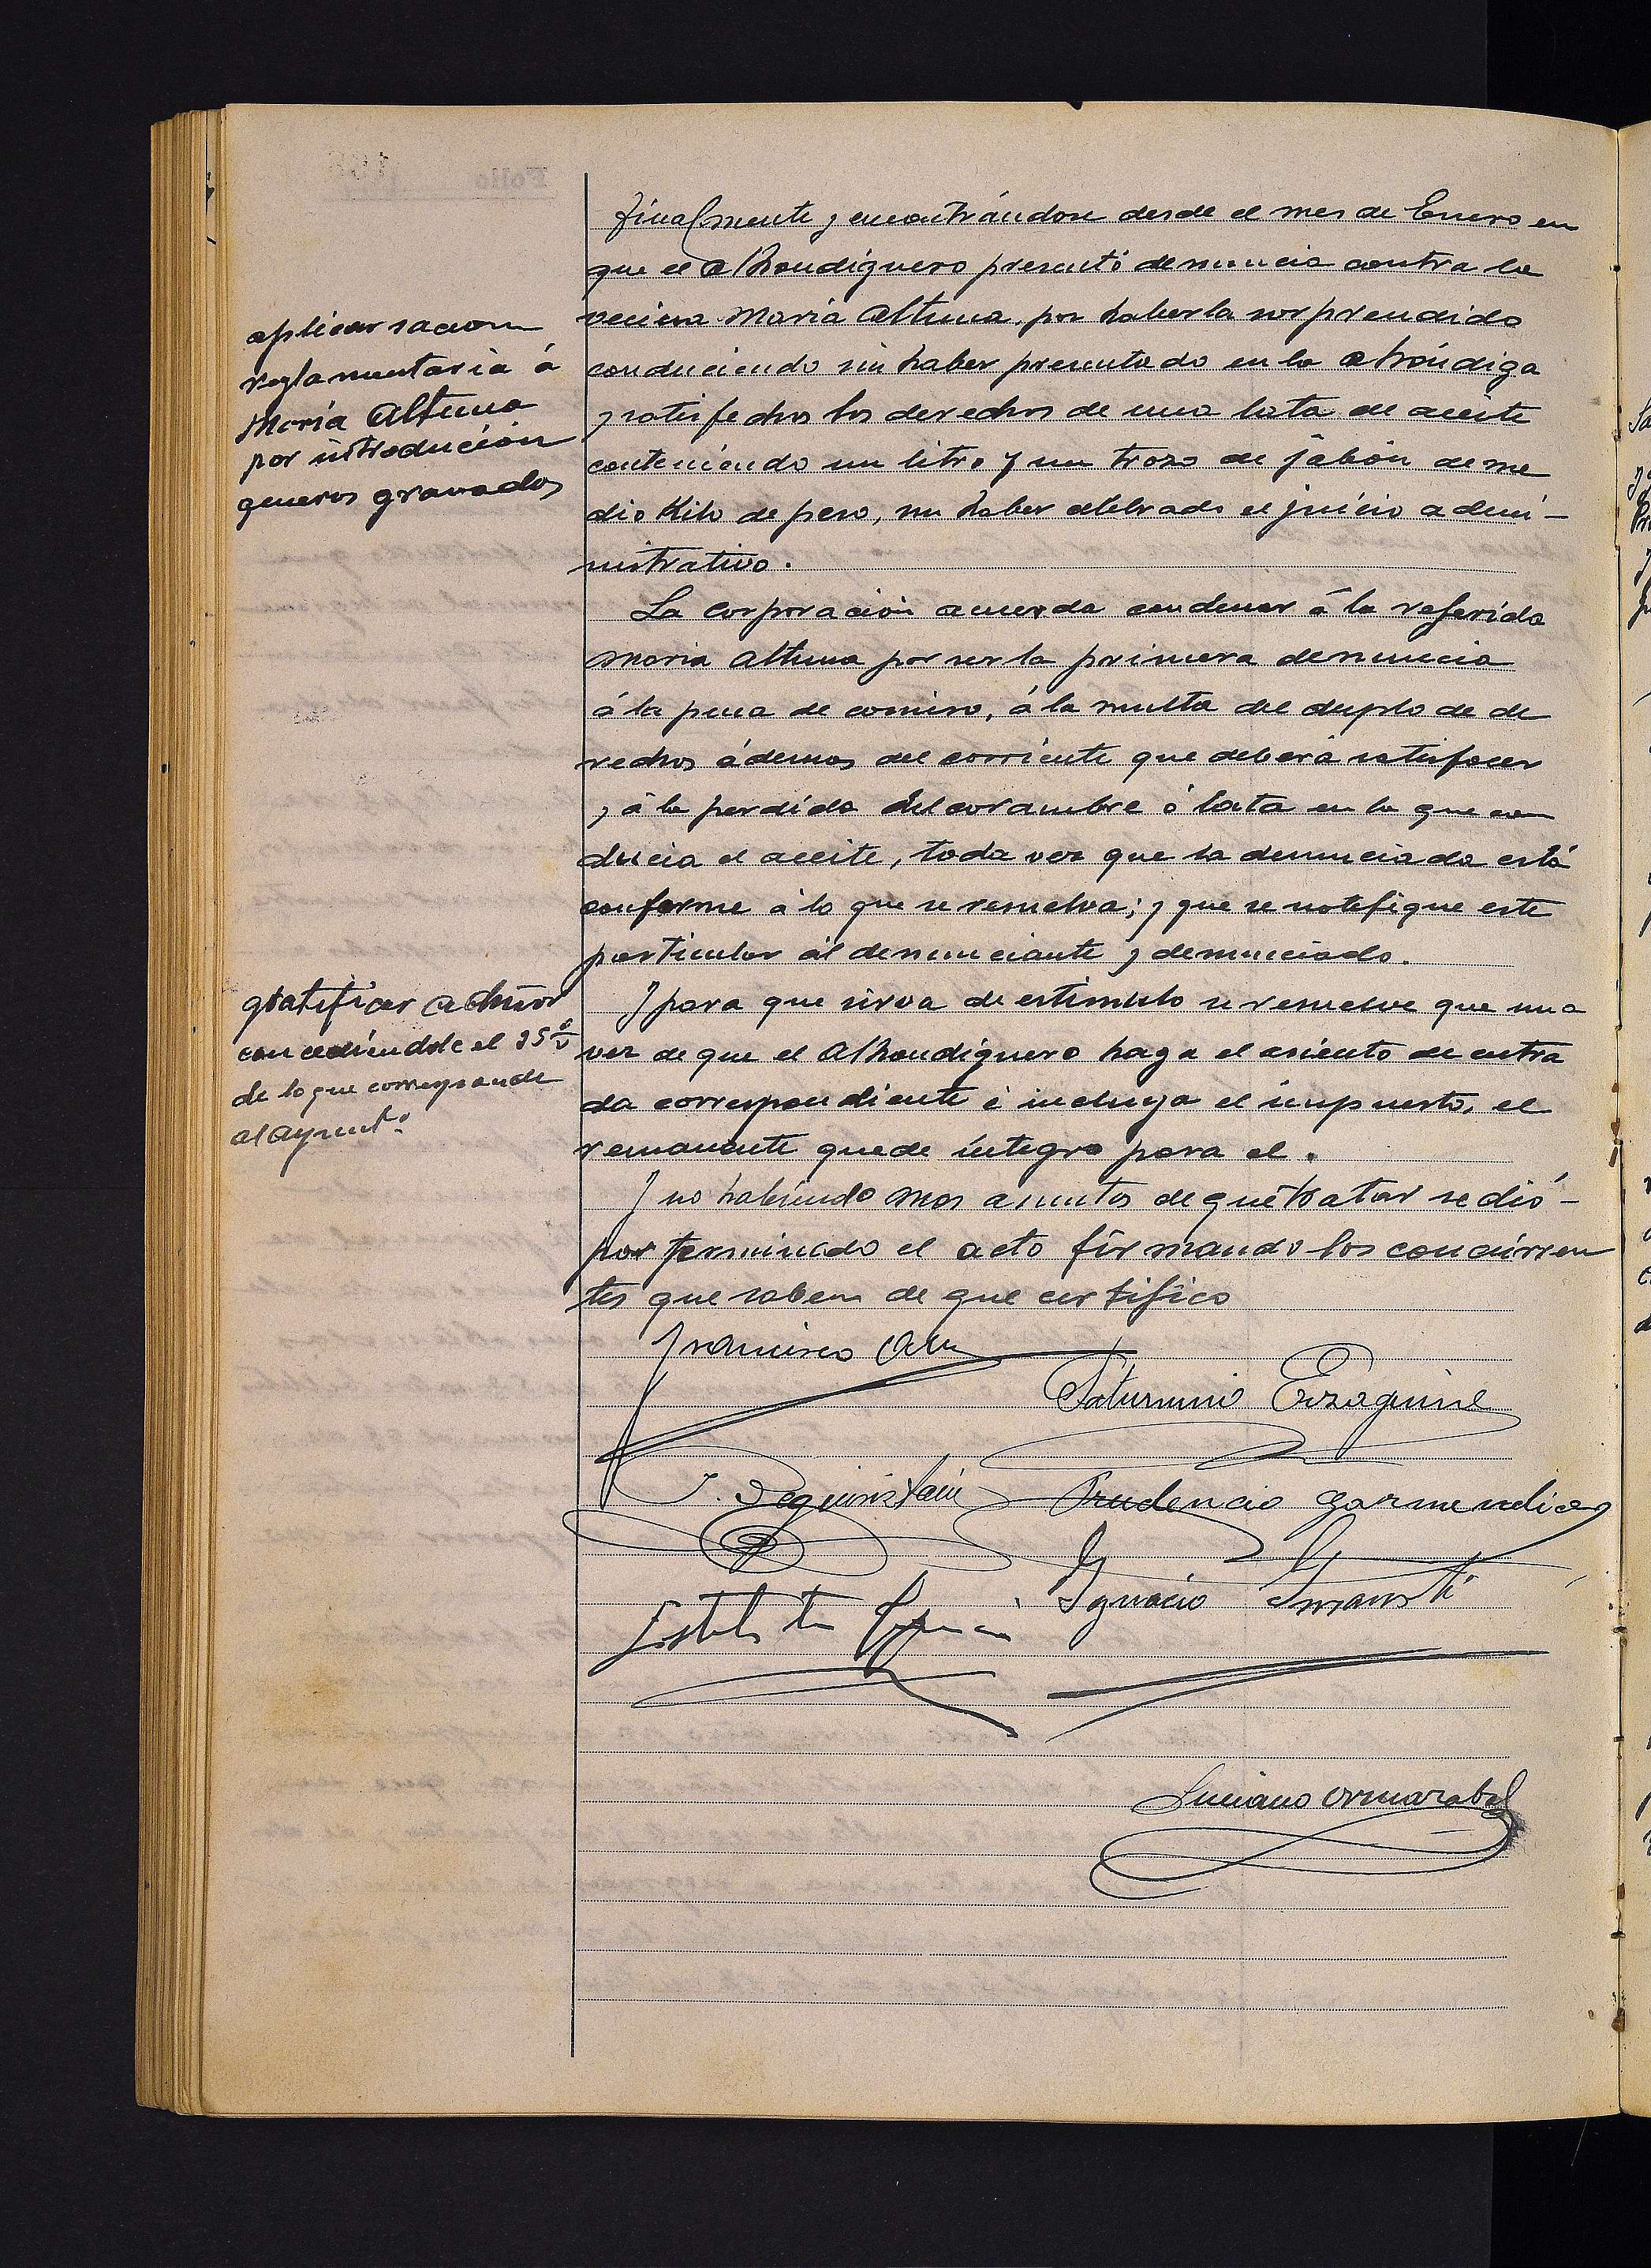 Finalmente y encontrándose desde el mes de Enero en
que el Alhondiguero presentó denuncia contra la
vecina María Altuna, por haberla sorprendido
conduciendo sin haber presentado en la alhóndiga
y satisfechos los derechos de una lata de aceite
conteniendo un litro y un trozo de jabón de me
dio Kilo de peso, sin haber celebrado el juicio admi-
nistrativo.
aplicar sacion
reglamentaria á
María Altuna
por introducción
generos gravados
La corporación acuerda condenar á la referida
María Altuna por ser la primera denuncia
á la pena de comiso, á la multa del duplo de de
rechos ádemas del corriente que deberá satisfacer
y á la perdida del corambre ó lata en la que con
ducia el aceite, toda vez que la denunciada está
conforme á lo que se resuelva; y que se notifique este
particular ál denunciante y denunciado.
Y para que sirva de estimulo se resuelve que una
vez de que el Alhondiguero haga el asiento de entra
da correspondiente é incluya el impuesto, el
remanente quede íntegro para el.
gratificar
concediendole el 25%
de lo que corresponde
al Ayuntº
Y no habiendo mas asuntos de que tratar se dió-
por terminado el acto firmando los concurren
tes que saben de que certifico
Francisco
Saturnino Eizaguirre
J. Beguiristain Prudencio Garmendia
Ignacio
Luciano Ormazabal